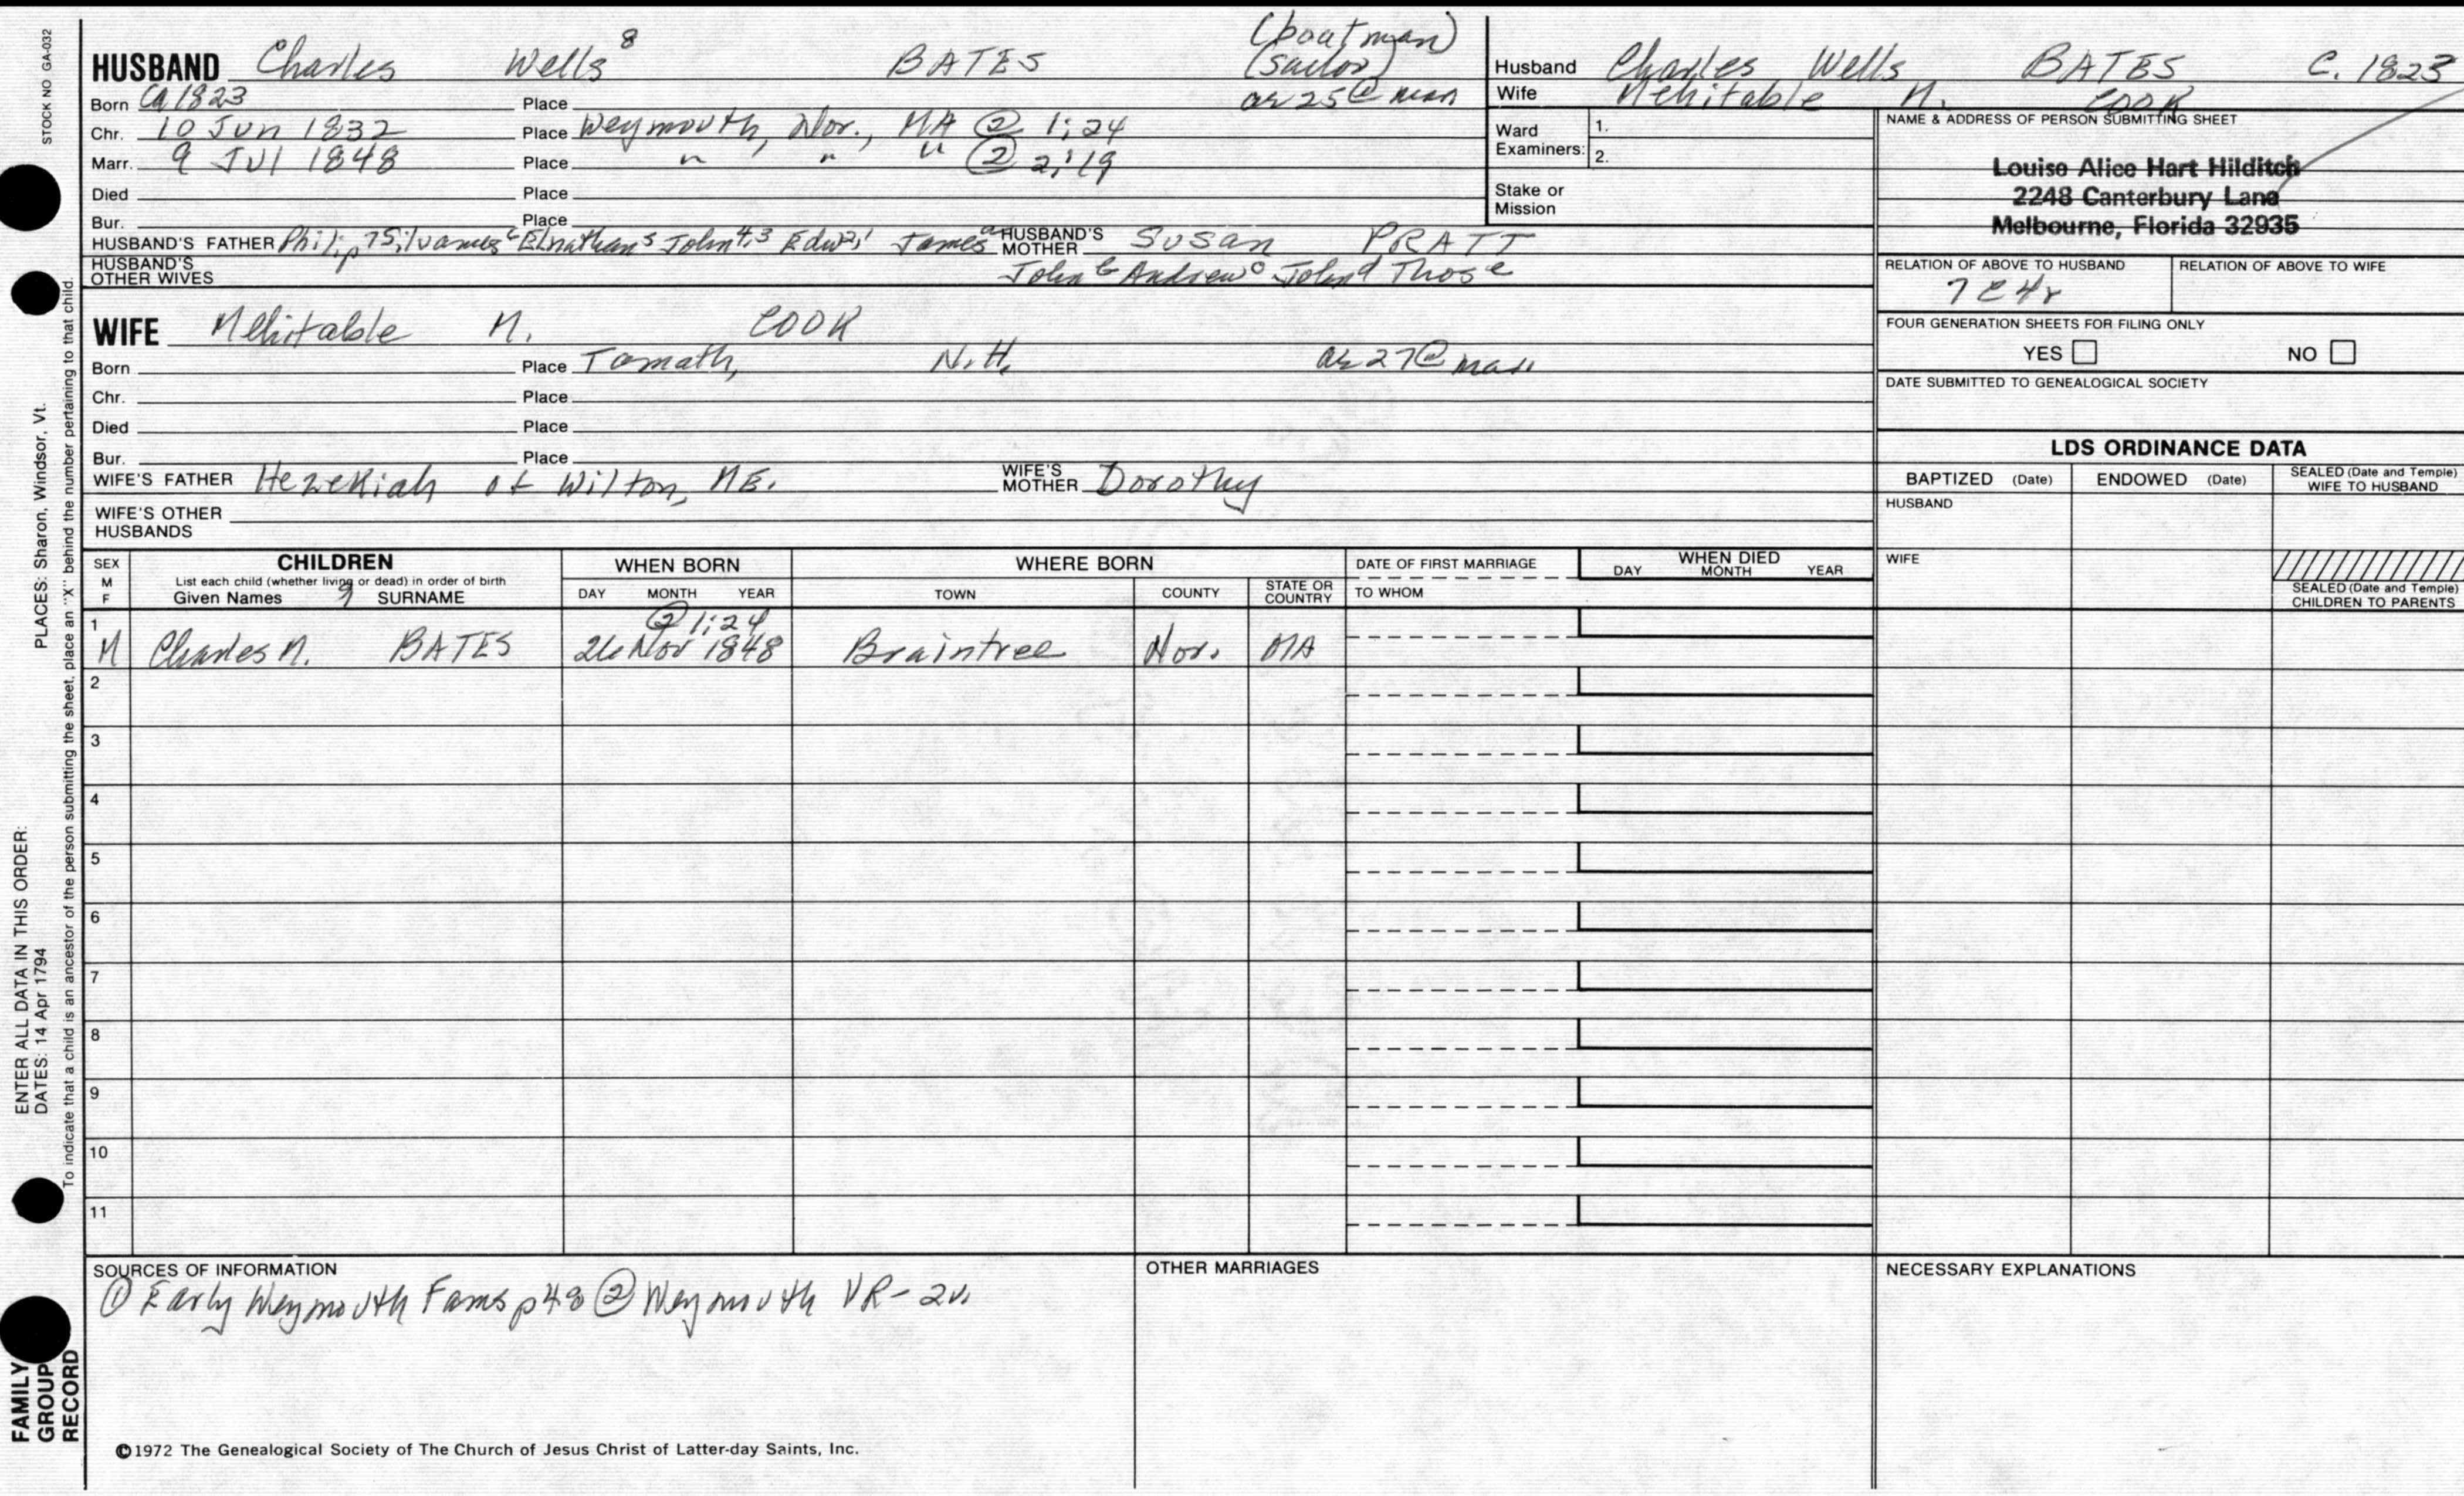 STOCK NO GA-032
HUSBAND Charles Wells 8 BATES (boatman) (sailor)
Born Ca 1823 Place ae 25 @ marr
Chr. 10 Jun 1832 Place Weymouth, Nor., MA ② 1:24
Marr. 9 Jul 1848 Place " " " ② 2:19
Died Place
Bur. Place
HUSBAND'S FATHER Philip 7 Silvanus 6 Elnathan 5 John 4,3 Edw 2,1 James a HUSBAND'S MOTHER Susan PRATT
HUSBAND'S OTHER WIVES John b Andrew c John d Thos e
Husband Charles Wells BATES C. 1823
Wife Mehitable M. COOK
Ward Examiners: 1.
2.
Stake or Mission
NAME & ADDRESS OF PERSON SUBMITTING SHEET
Louise Alice Hart Hilditch
2248 Canterbury Lane
Melbourne, Florida 32935
RELATION OF ABOVE TO HUSBAND RELATION OF ABOVE TO WIFE
7 C 4r
FOUR GENERATION SHEETS FOR FILING ONLY
YES NO
DATE SUBMITTED TO GENEALOGICAL SOCIETY
WIFE Mehitable M. COOK
Born Place Tamath, N.H. ae 27 @ marr
Chr. Place
Died Place
Bur. Place
WIFE'S FATHER Hezekiah of Wilton, ME. WIFE'S MOTHER Dorothy
WIFE'S OTHER HUSBANDS
LDS ORDINANCE DATA
BAPTIZED (Date) ENDOWED (Date) SEALED (Date and Temple) WIFE TO HUSBAND
HUSBAND
WIFE
SEALED (Date and Temple) CHILDREN TO PARENTS
SEX M F CHILDREN WHEN BORN WHERE BORN DATE OF FIRST MARRIAGE WHEN DIED
List each child (whether living or dead) in order of birth
Given Names 9 SURNAME DAY MONTH YEAR TOWN COUNTY STATE OR COUNTRY TO WHOM DAY MONTH YEAR
1 ② 1:24
M Charles M. BATES 26 Nov 1848 Braintree Nor. MA
2
3
4
5
6
7
8
9
10
11
SOURCES OF INFORMATION
① Early Weymouth Fams p48 ② Weymouth VR-2v.
OTHER MARRIAGES
NECESSARY EXPLANATIONS
©1972 The Genealogical Society of The Church of Jesus Christ of Latter-day Saints, Inc.
FAMILY GROUP RECORD
ENTER ALL DATA IN THIS ORDER:
DATES: 14 Apr 1794 PLACES: Sharon, Windsor, Vt.
To indicate that a child is an ancestor of the person submitting the sheet, place an "X" behind the number pertaining to that child.